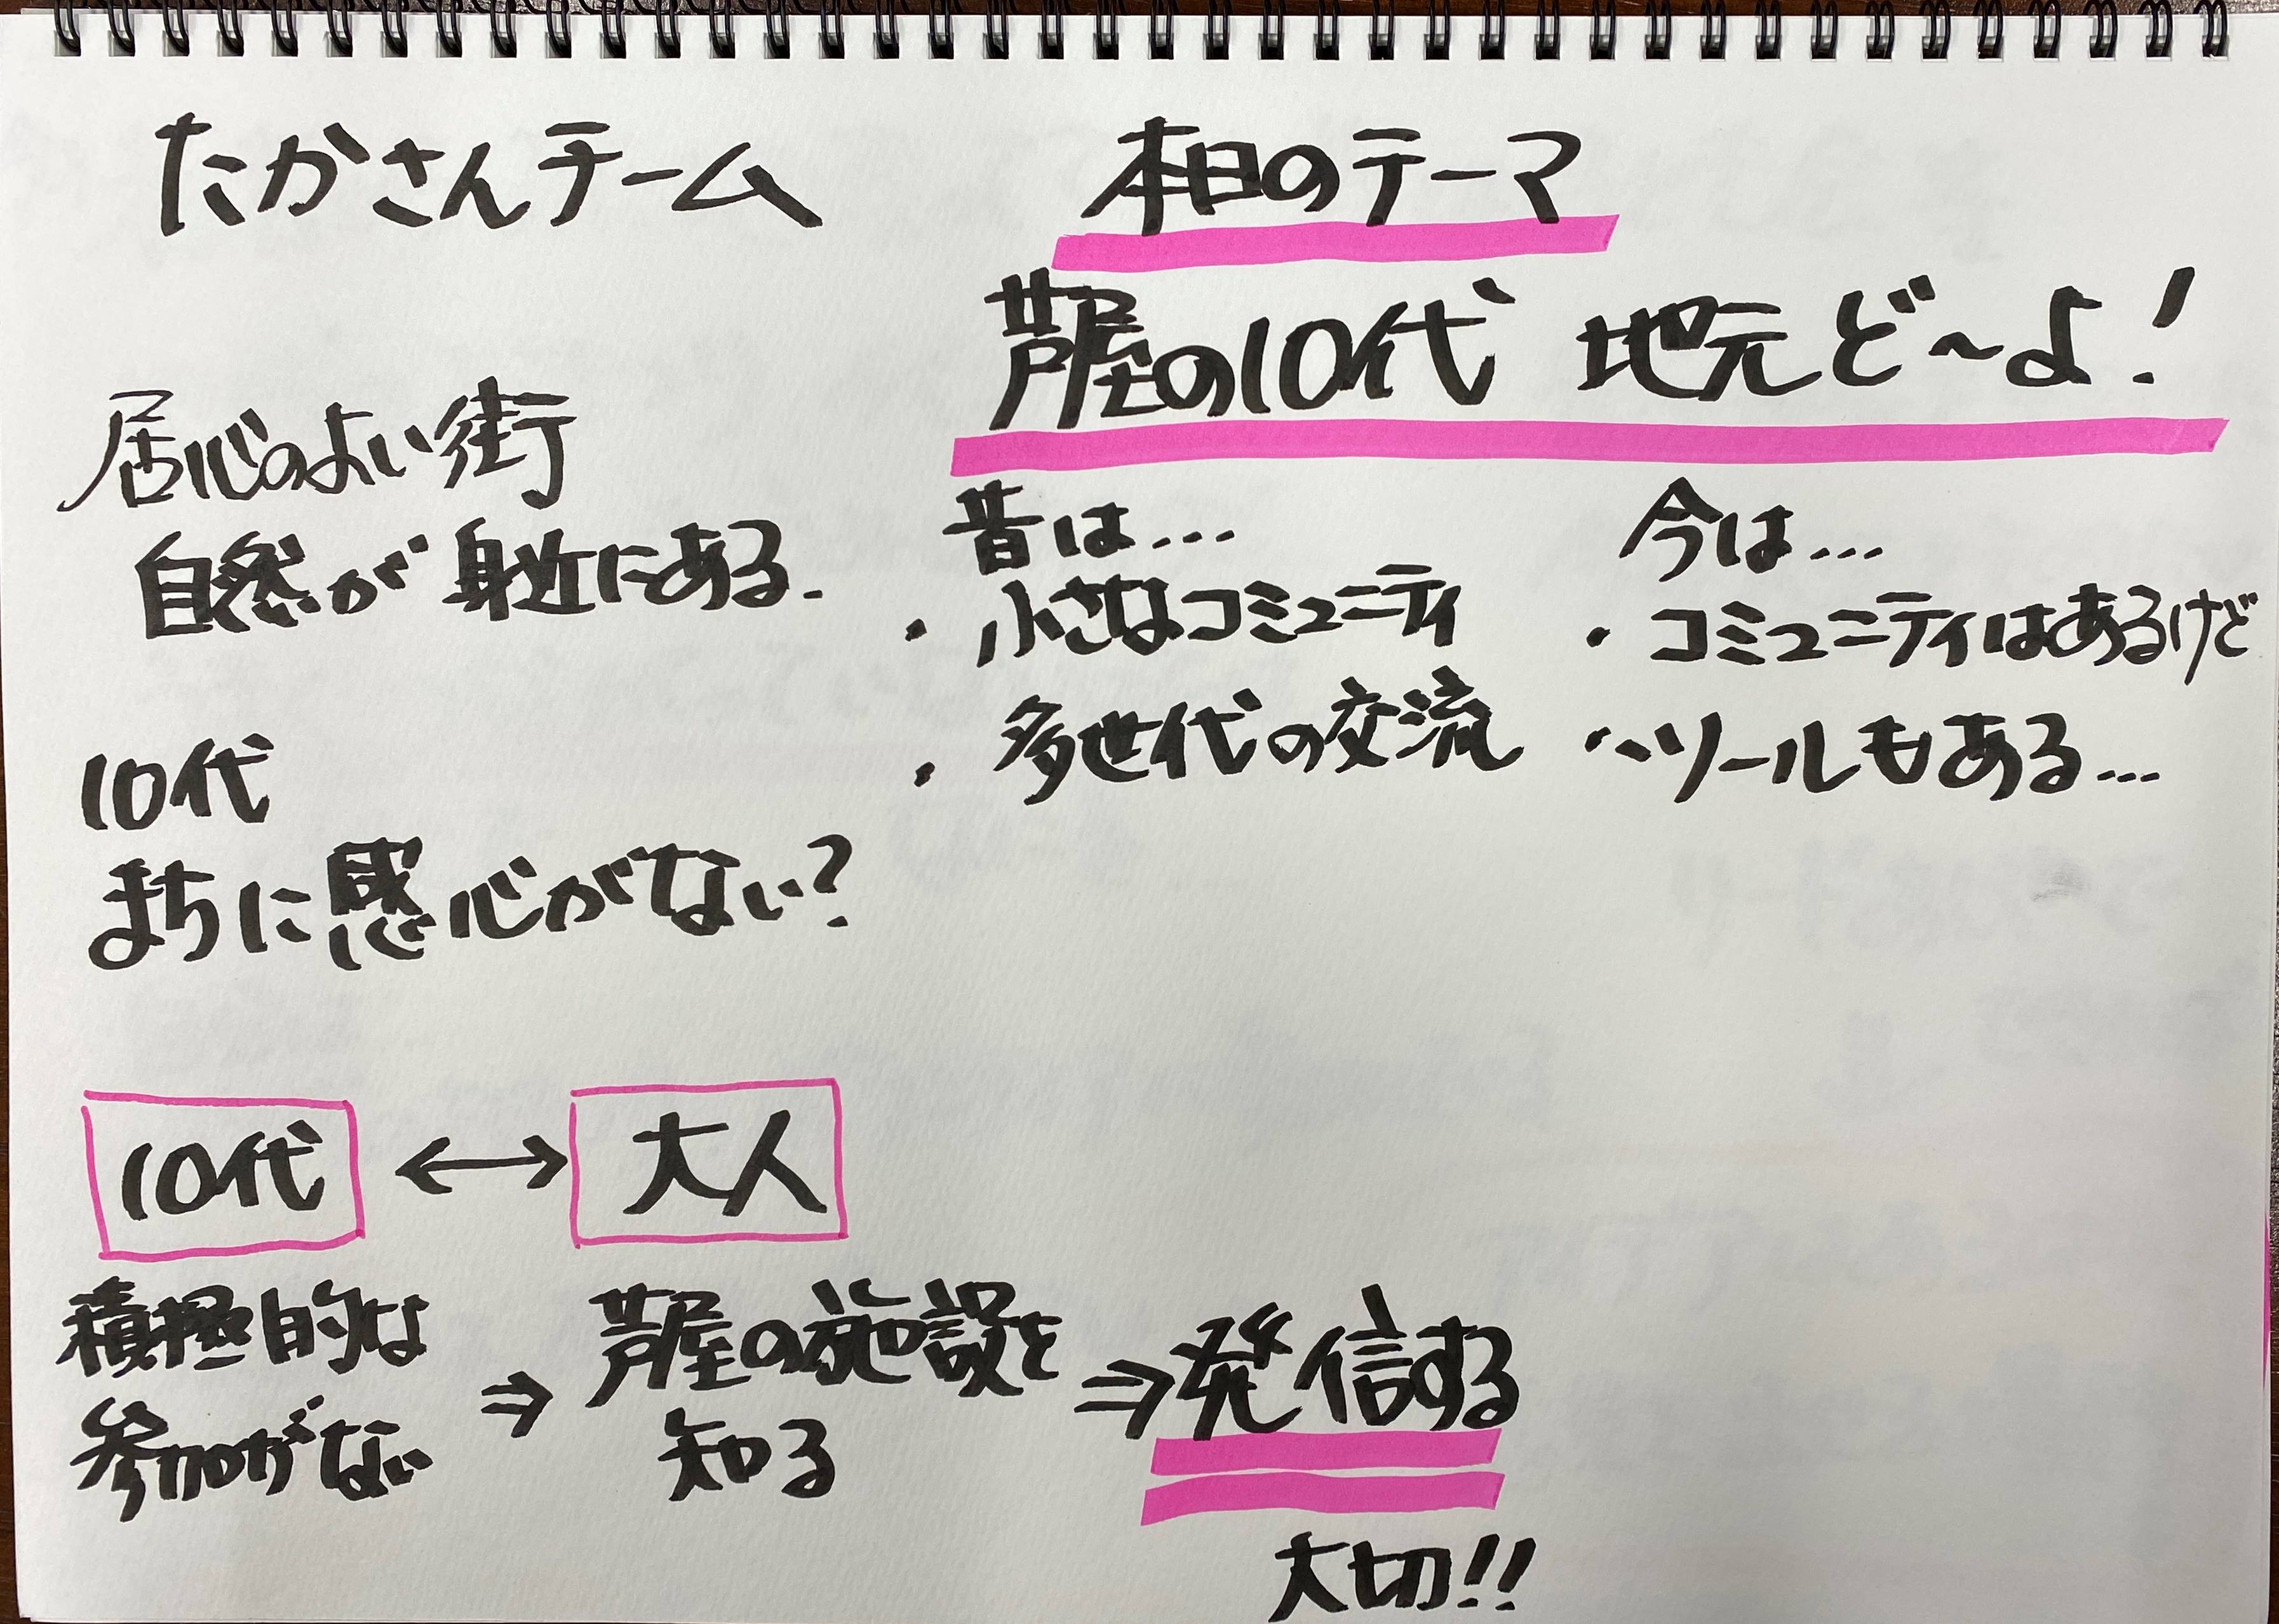 たかさんチーム
本日のテーマ
芦屋の10代 地元ど～よ!
居心のよい街
自然が身近にある.
10代
まちに感心がない?
昔は...
・小さなコミュニティ
・多世代の交流
今は...
・コミュニティはあるけど
・ツールもある...
10代 ↔ 大人
積極的な
参加がない
⇒ 芦屋の施設を
知る
⇒ 発信する
大切!!